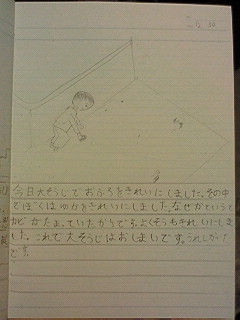 今日大そうじでおふろをきれいにしました。その中
でぼくはゆかをきれいにしました。なぜかというと
カビがたまっていたからです。よくそうじきれいにしま
した。これで大そうじはおしまいです。うれしかった
です。